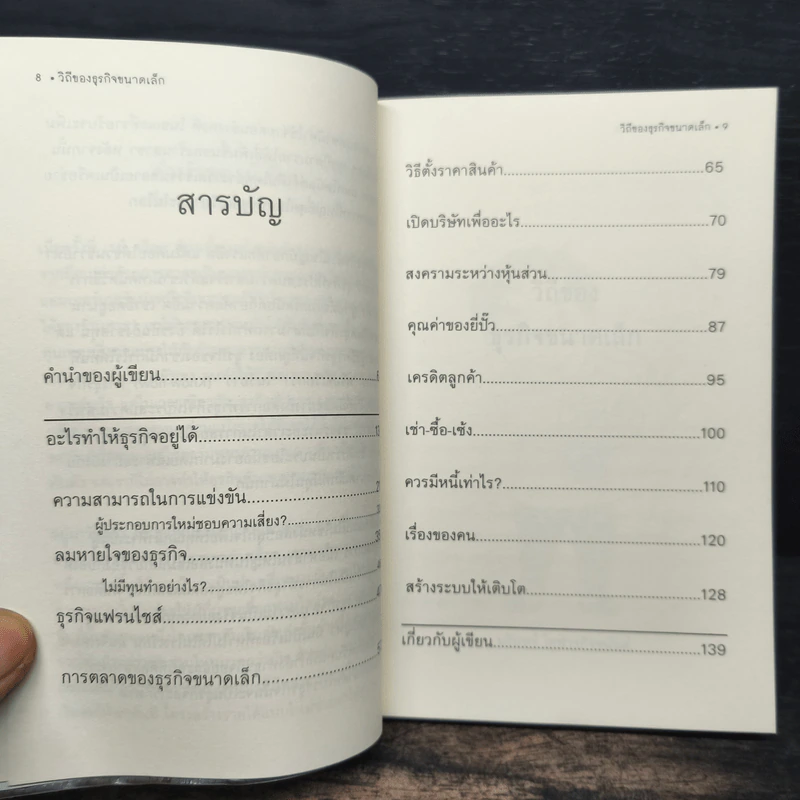 8 • วิถีของธุรกิจขนาดเล็ก
สารบัญ
คำนำของผู้เขียน
อะไรทำให้ธุรกิจอยู่ได้
ความสามารถในการแข่งขัน
ผู้ประกอบการใหม่ชอบความเสี่ยง?
ลมหายใจของธุรกิจ
ไม่มีทุนทำอย่างไร?
ธุรกิจแฟรนไชส์
การตลาดของธุรกิจขนาดเล็ก
วิถีของธุรกิจขนาดเล็ก • 9
วิธีตั้งราคาสินค้า 65
เปิดบริษัทเพื่ออะไร 70
สงครามระหว่างหุ้นส่วน 79
คุณค่าของยี่ปั๊ว 87
เครดิตลูกค้า 95
เช่า-ซื้อ-เซ้ง 100
ควรมีหนี้เท่าไร? 110
เรื่องของคน 120
สร้างระบบให้เติบโต 128
เกี่ยวกับผู้เขียน 139